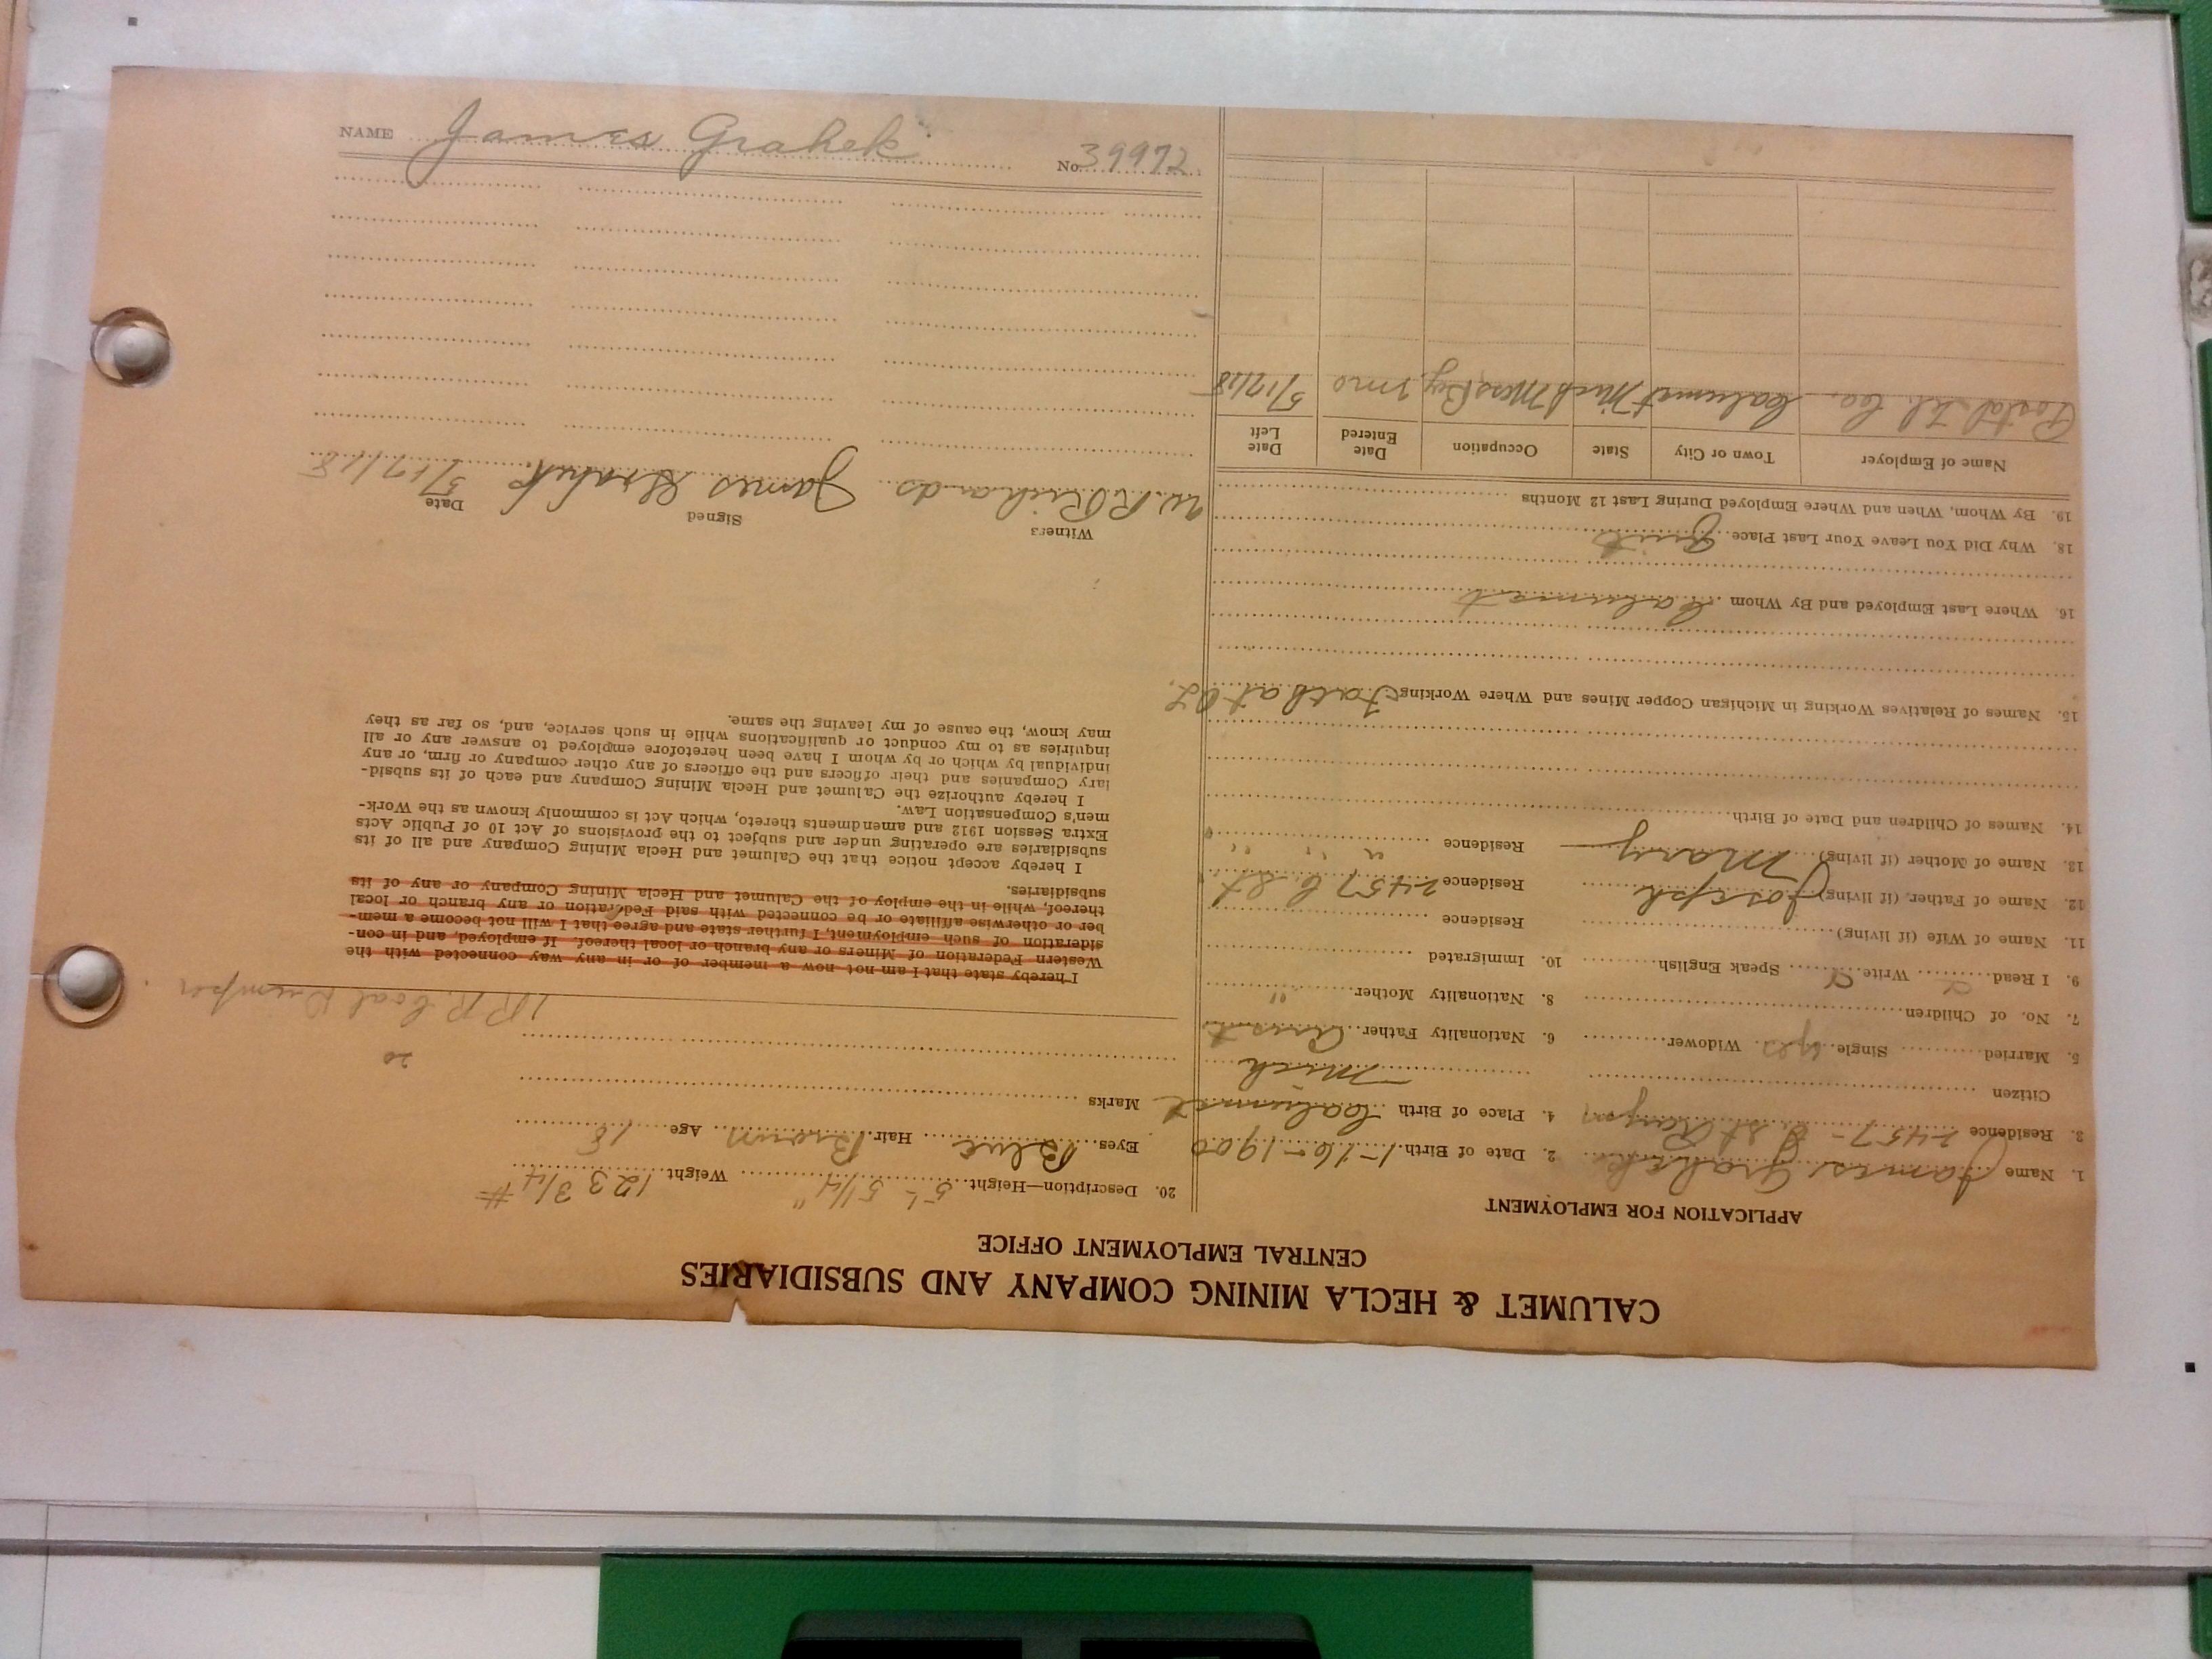 NAME James Grahek No. 39972
CALUMET & HECLA MINING COMPANY AND SUBSIDIARIES
CENTRAL EMPLOYMENT OFFICE
APPLICATION FOR EMPLOYMENT
1. Name James Grahek 2. Date of Birth 1-16-1900
3. Residence 2457- C. St. 4. Place of Birth Calumet
Citizen Mich
5. Married Single yes Widower 6. Nationality Father Aust
7. No. of Children 8. Nationality Mother "
9. I Read Write Speak English 10. Immigrated
11. Name of Wife (if living) Residence
12. Name of Father, (if living) Joseph Residence 2457 C St
13. Name of Mother (if living) Mary Residence " " "
14. Names of Children and Date of Birth
15. Names of Relatives Working in Michigan Copper Mines and Where Working Fath at
16. Where Last Employed and By Whom Calumet
18. Why Did You Leave Your Last Place Quit
19. By Whom, When and Where Employed During Last 12 Months
Name of Employer Town or City State Occupation Date Entered Date Left
Postal Tel. Co. Calumet Mich Mess Boy 5/17/18
20. Description—Height 5'- 5 1/4" Weight 123 3/4 #
Eyes Blue Hair Brown Age 18
Marks
20
R R Coal
I hereby state that I am not now a member of or in any way connected with the
Western Federation of Miners or any branch or local thereof. If employed, and in con-
sideration of such employment, I further state and agree that I will not become a mem-
ber or otherwise affiliate or be connected with said Federation or any branch or local
thereof, while in the employ of the Calumet and Hecla Mining Company or any of its
subsidiaries.
I hereby accept notice that the Calumet and Hecla Mining Company and all of its
subsidiaries are operating under and subject to the provisions of Act 10 of Public Acts
Extra Session 1912 and amendments thereto, which Act is commonly known as the Work-
men's Compensation Law.
I hereby authorize the Calumet and Hecla Mining Company and each of its subsid-
iary Companies and their officers and the officers of any other company or firm, or any
individual by which or by whom I have been heretofore employed to answer any or all
inquiries as to my conduct or qualifications while in such service, and, so far as they
may know, the cause of my leaving the same.
Witness Signed Date
W. R. Richards James Grahek 5/17/18